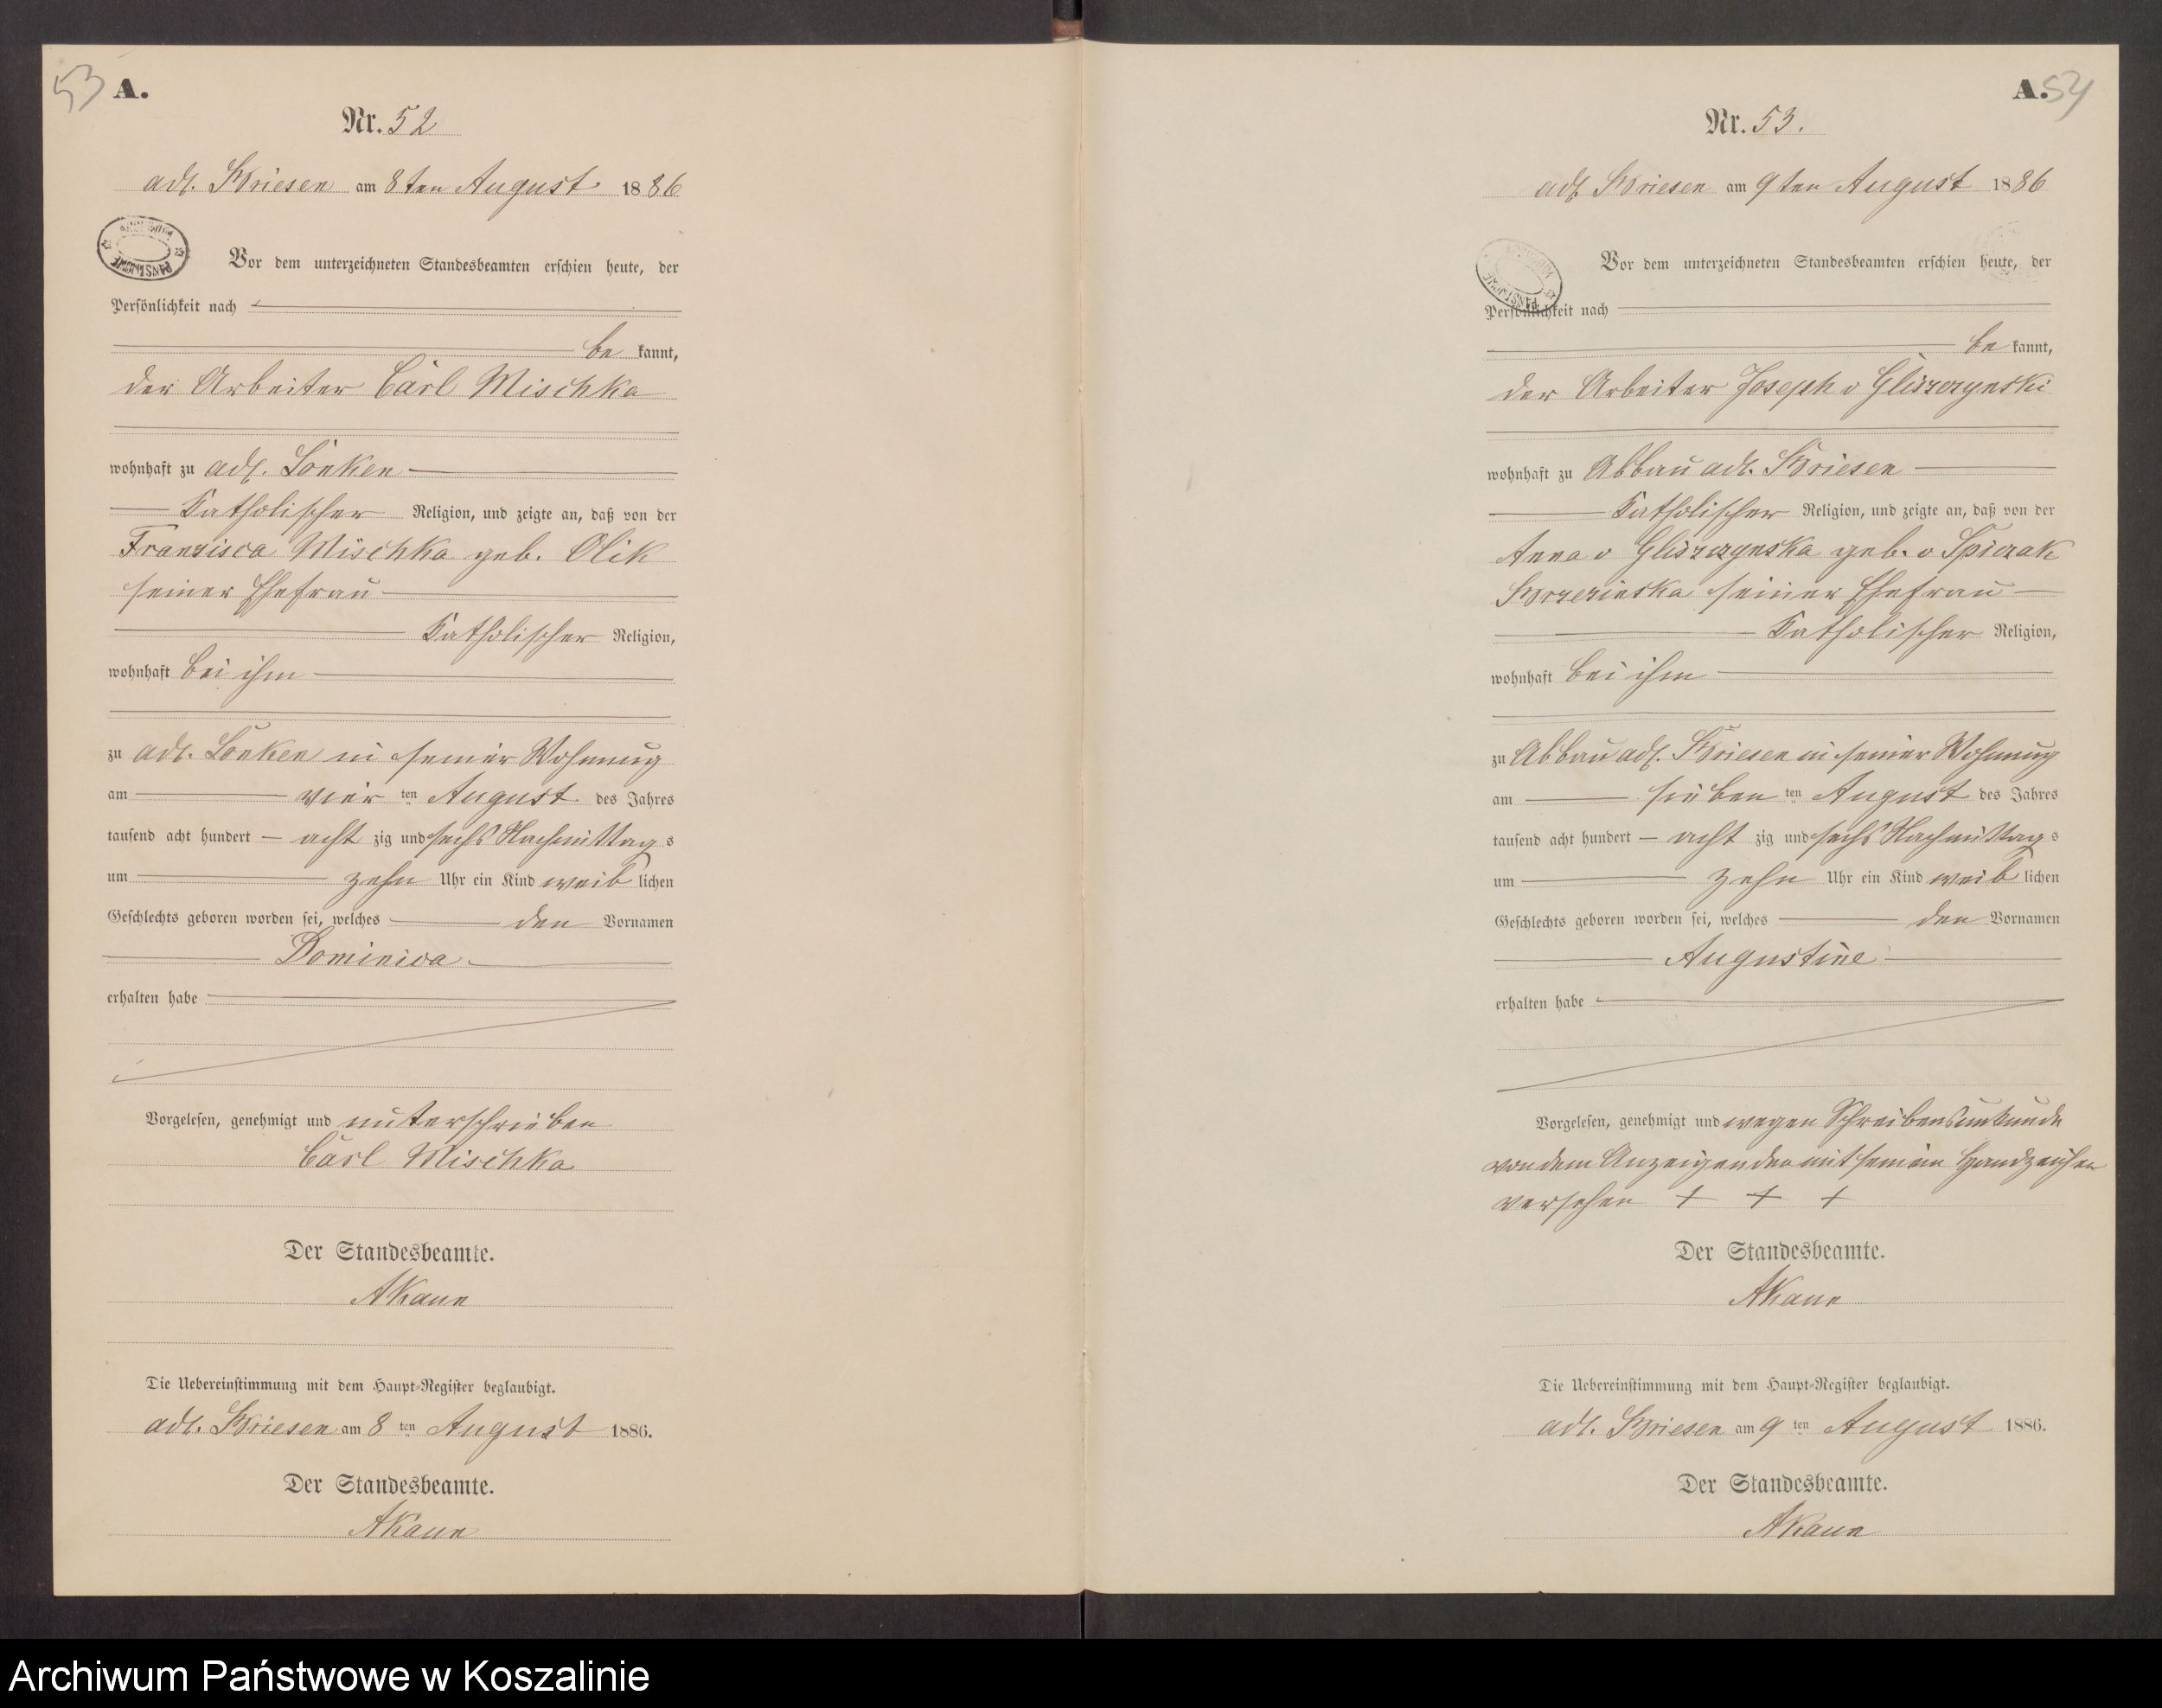 53 A.
Nr. 52
adl. Briesen am 8ten August 1886
Vor dem unterzeichneten Standesbeamten erschien heute, der
Persönlichkeit nach
be kannt,
der Arbeiter Carl Mischka
wohnhaft zu adl. Lonken
Katholischer Religion, und zeigte an, daß von der
Franzisca Mischka geb. Olik
seiner Ehefrau
Katholischer Religion,
wohnhaft bei ihm
zu adl. Lonken in seiner Wohnung
am vier ten August des Jahres
tausend acht hundert acht zig und sechs Nachmittag s
um zehn Uhr ein Kind weib lichen
Geschlechts geboren worden sei, welches den Vornamen
Dominica
erhalten habe
Vorgelesen, genehmigt und unterschrieben
Carl Mischka
Der Standesbeamte.
AKaun
Die Uebereinstimmung mit dem Haupt-Register beglaubigt.
adl. Briesen am 8 ten August 1886.
Der Standesbeamte.
AKaun
A. 54
Nr. 53.
adl. Briesen am 9ten August 1886
Vor dem unterzeichneten Standesbeamten erschien heute, der
Persönlichkeit nach
be kannt,
der Arbeiter Joseph v Gliszczynski
wohnhaft zu Abbau adl. Briesen
Katholischer Religion, und zeigte an, daß von der
Anna v Gliszczynska geb. v Spiczak
Brzezinska seiner Ehefrau
Katholischer Religion,
wohnhaft bei ihm
zu Abbau adl. Briesen in seiner Wohnung
am sieben ten August des Jahres
tausend acht hundert acht zig und sechs Nachmittag s
um zehn Uhr ein Kind weib lichen
Geschlechts geboren worden sei, welches den Vornamen
Augustine
erhalten habe
Vorgelesen, genehmigt und wegen Schreibensunkunde
von dem Anzeigenden mit seinem Handzeichen
versehen + + +
Der Standesbeamte.
AKaun
Die Uebereinstimmung mit dem Haupt-Register beglaubigt.
adl. Briesen am 9 ten August 1886.
Der Standesbeamte.
AKaun
Archiwum Państwowe w Koszalinie